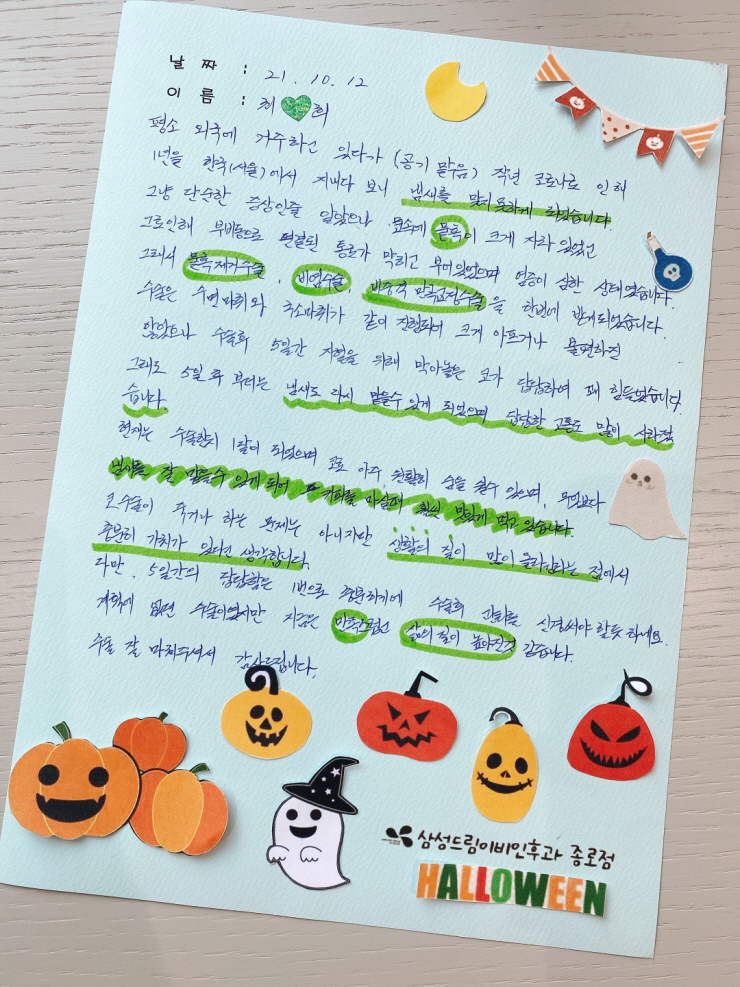 날 짜 : 21. 10. 12
이 름 : 최 희
평소 외국에 거주하고 있다가 (공기 맑음) 작년 코로나로 인해
1년을 한국(서울)에서 지내다 보니 냄새를 맡지 못하게 되었습니다.
그냥 단순한 증상인줄 알았으나 콧속에 물혹이 크게 자라 있었고
그로인해 부비동으로 연결된 통로가 막히고 부어있었으며 염증이 심한 상태였습니다.
그래서 물혹제거수술, 비염수술, 비중격 만곡교정수술을 한번에 받게되었습니다.
수술은 수면마취와 국소마취가 같이 진행되어 크게 아프거나 불편하진
않았으나 수술후 5일간 지혈을 위해 막아놓은 코가 답답하여 꽤 힘들었습니다.
그래도 5일 후 부터는 냄새도 다시 맡을수 있게 되었으며 답답한 고통도 많이 사라졌
습니다.
현재는 수술한지 1달이 되었으며 코로 아주 원활히 숨을 쉴수 있으며, 무엇보다
냄새를 잘 맡을수 있게 되어 커피를 마실때 훨씬 맛있게 먹고 있습니다.
코수술이 죽거나 하는 문제는 아니지만 생활의 질이 많이 올라간다는 점에서
충분히 가치가 있다고 생각합니다.
다만, 5일간의 답답함은 1번으로 충분하기에 수술후 관리를 신경써야 할듯 하네요.
계획에 없던 수술이였지만 지금은 만족스럽고 삶의 질이 높아진것 같습니다.
수술 잘 마쳐주셔서 감사드립니다.
삼성드림이비인후과 종로점
HALLOWEEN